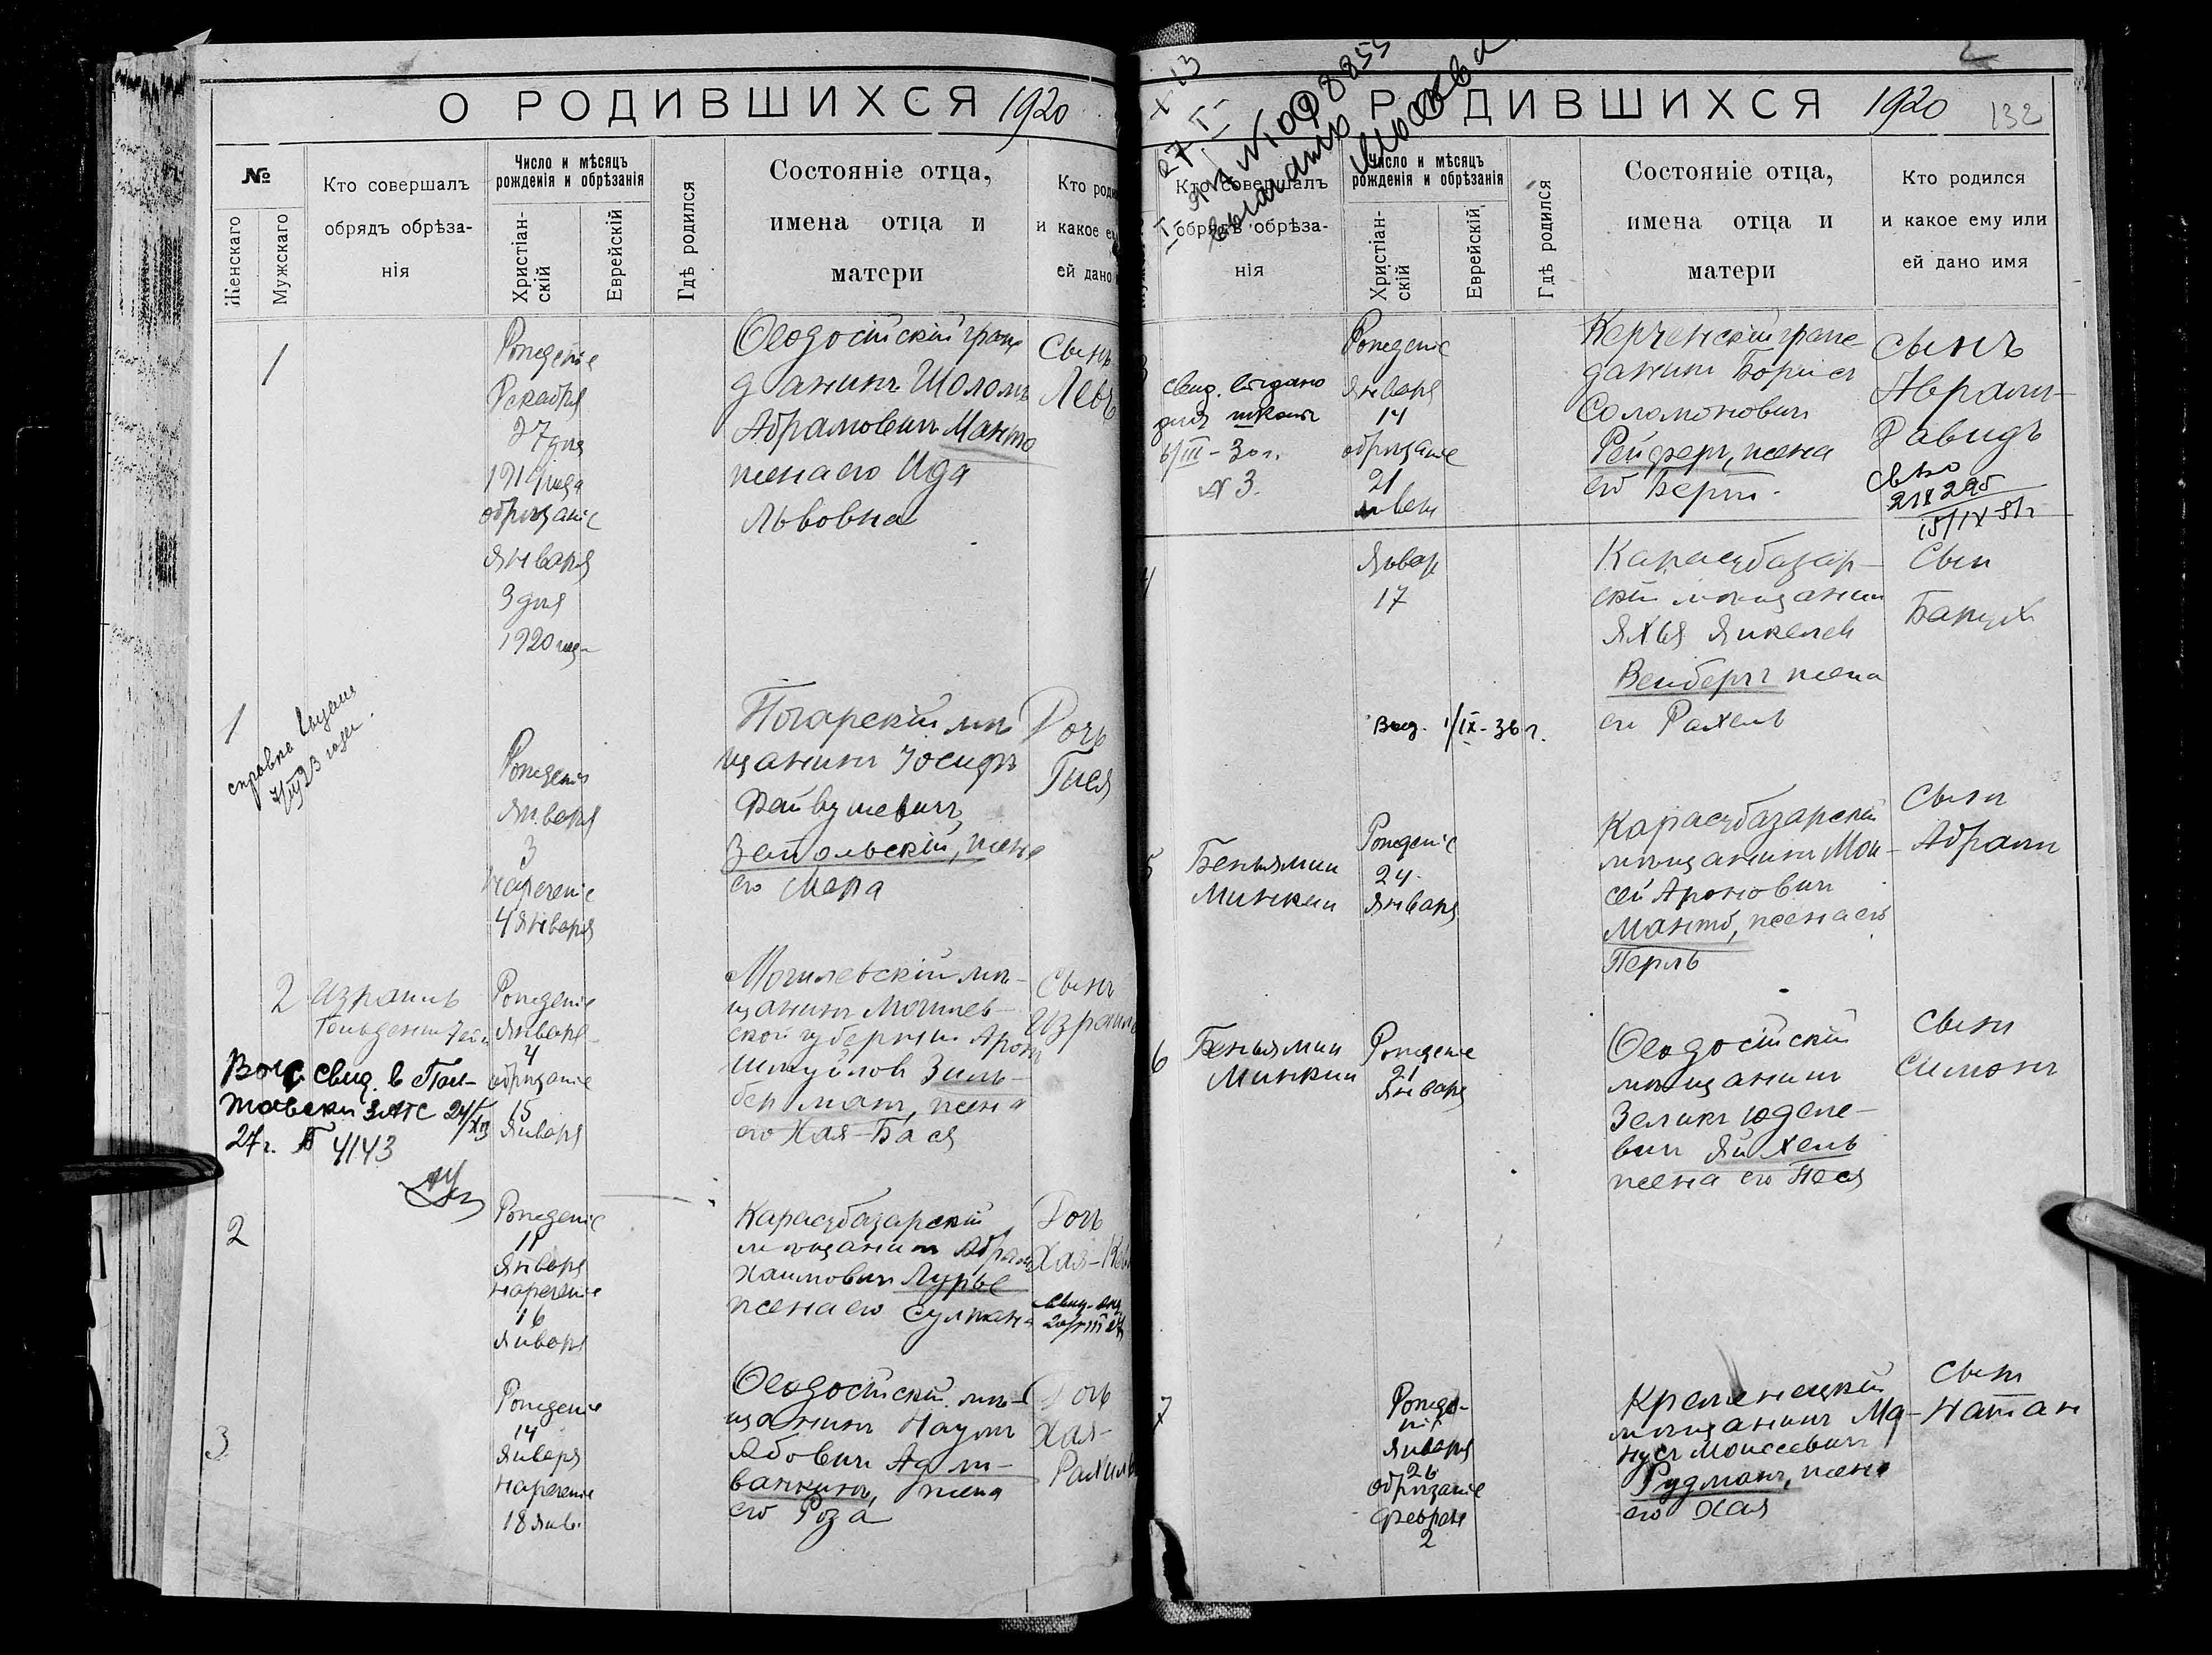 О РОДИВШИХСЯ 1920
№
Женскаго
Мужскаго
Кто совершалъ
обрядъ обрѣза-
нія
Число и мѣсяцъ
рожденія и обрѣзанія
Христіан-
скій
Еврейскій
Гдѣ родился
Состояніе отца,
имена отца и
матери
Кто роди
и какое е
ей дано
1
Рожденіе
Декабря
27 дня
1919 года
обрѣзаніе
Января
3 дня
1920 года
Ѳеодосійскій граж
данинъ Шоломъ
Абрамовичъ Манто
жена его Ида
Львовна
Сынъ
Левъ
1
справка выдана
7/III 23 года.
Рожденіе
Января
3
Нареченіе
4 Января
Погарскій мѣ
щанинъ Іосифъ
Файвушевичъ
Запольскій, жена
его Мера
Дочь
Гися
2
Израиль
Рожденіе
Января
4
обрѣзаніе
15
Января
Могилевскій мѣ-
щанинъ Могилев-
ской губерніи Арон
Шмуйлов Зиль-
берманъ, жена
его Хая-Бася
Сынъ
Израиль
свид. в Пол-
тавски ЗАГС 24/XII
27 г. № 4143
2
Рожденіе
11
Января
нареченіе
16
Января
Карасубазарскій
мѣщанинъ Абрам
Хаимович Лурье
жена его Султана
Дочь
Хая-
3
Рожденіе
14
Января
нареченіе
18 Янв.
Ѳеодосійскій мѣ-
щанинъ Наумъ
Ядлi-
ванкинъ, жена
его Роза
Дочь
Хая-
Рахиль
О РОДИВШИХСЯ 1920
132
№ 8855
Москва
Кто совершалъ
обрядъ обрѣза-
нія
Число и мѣсяцъ
рожденія и обрѣзанія
Христіан-
скій
Еврейскій
Гдѣ родился
Состояніе отца,
имена отца и
матери
Кто родился
и какое ему или
ей дано имя
3
свид. выдано
для школы
6/III - 30 г.
№ 3.
Рожденіе
Января
14
обрѣзаніе
21
Керченскій граж-
данинъ Борисъ
Соломоновичъ
Рейферъ, жена
его Берта.
Сынъ
Авраам-
Давидъ
15/IX 51 г
4
Январ
17
Выд. 1/IX - 36 г.
Карасубазар-
скій мѣщанинъ
Яхья Янкелев
Венбергъ жена
его Рахель
Сын
Барух
5
Беньямин
Минкин
Рожденіе
24
Января
Карасубазарскій
мѣщанинъ Мои-
сей Аронович
Манто, жена его
Перль
Сынъ
Абрам
6
Беньямин
Минкин
Рожденіе
21
Января
Ѳеодосійскій
мѣщанинъ
Зеликъ Юделе-
вич Яйхель
жена его Песя
Сынъ
Симонъ
7
Рожде-
ніе
Января
26
обрѣзаніе
Февраля
2
Кременецкій
мѣщанинъ Ма-
нусъ Моисеевич
Рудманъ, жена
его Хая
Сынъ
Натан